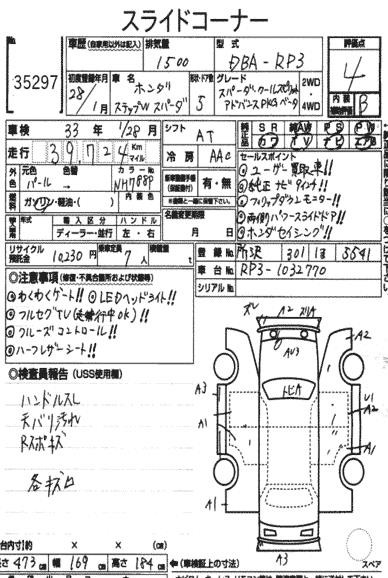 スライドコーナー
No.
35297
車歴 (自家用以外は記入)
排気量
1500
型式
DBA-RP3
評価点
4
内装
B
初度登録年月
28/1月
車名
ホンダ
ステップW スパーダ
形状・ドア数
5
グレード
スパーダ・クールスピリット
アドバンスPKGベータ
2WD・4WD
車検
33年 1/28月
シフト
AT
純正品
SR カワ AW TV PS ナビ PW エアB
走行
39,724
Km
マイル
冷房
AAC
セールスポイント
元色
パール
色替
→
カラーNo.
NH788P
外装色
内装色
◎ユーザー買取車!!
◎純正ナビ
◎フリップダウンモニター!!
◎両側パワースライドドア!!
◎ホンダセンシング!!
燃料
ガソリン・軽油・( )
有・無
名義変更期限
月 日
輸入車
形式
輸入区分
ディーラー・並行
ハンドル
左・右
リサイクル預託金
10,230円
乗車定員
7人
積載量
t
登録No.
所沢 301 は 5541
車台No.
RP3-1032770
シリアルNo.
◎注意事項 (修復・不具合箇所および状態等)
◎わくわくゲート!! ◎LEDヘッドライト!!
◎フルセグTV(走行中OK)!!
◎クルーズコントロール!!
◎ハーフレザーシート!!
◎検査員報告 (USS使用欄)
ハンドルスレ
天バリ汚れ
Rスポキズ
各キズ凹
A2
A2
AU3
トビA
A3
A1
U1
A2
A1
A3
スペア
台内寸(約 × × (cm)
長さ 473cm 幅 169cm 高さ 184cm
(車検証上の寸法)